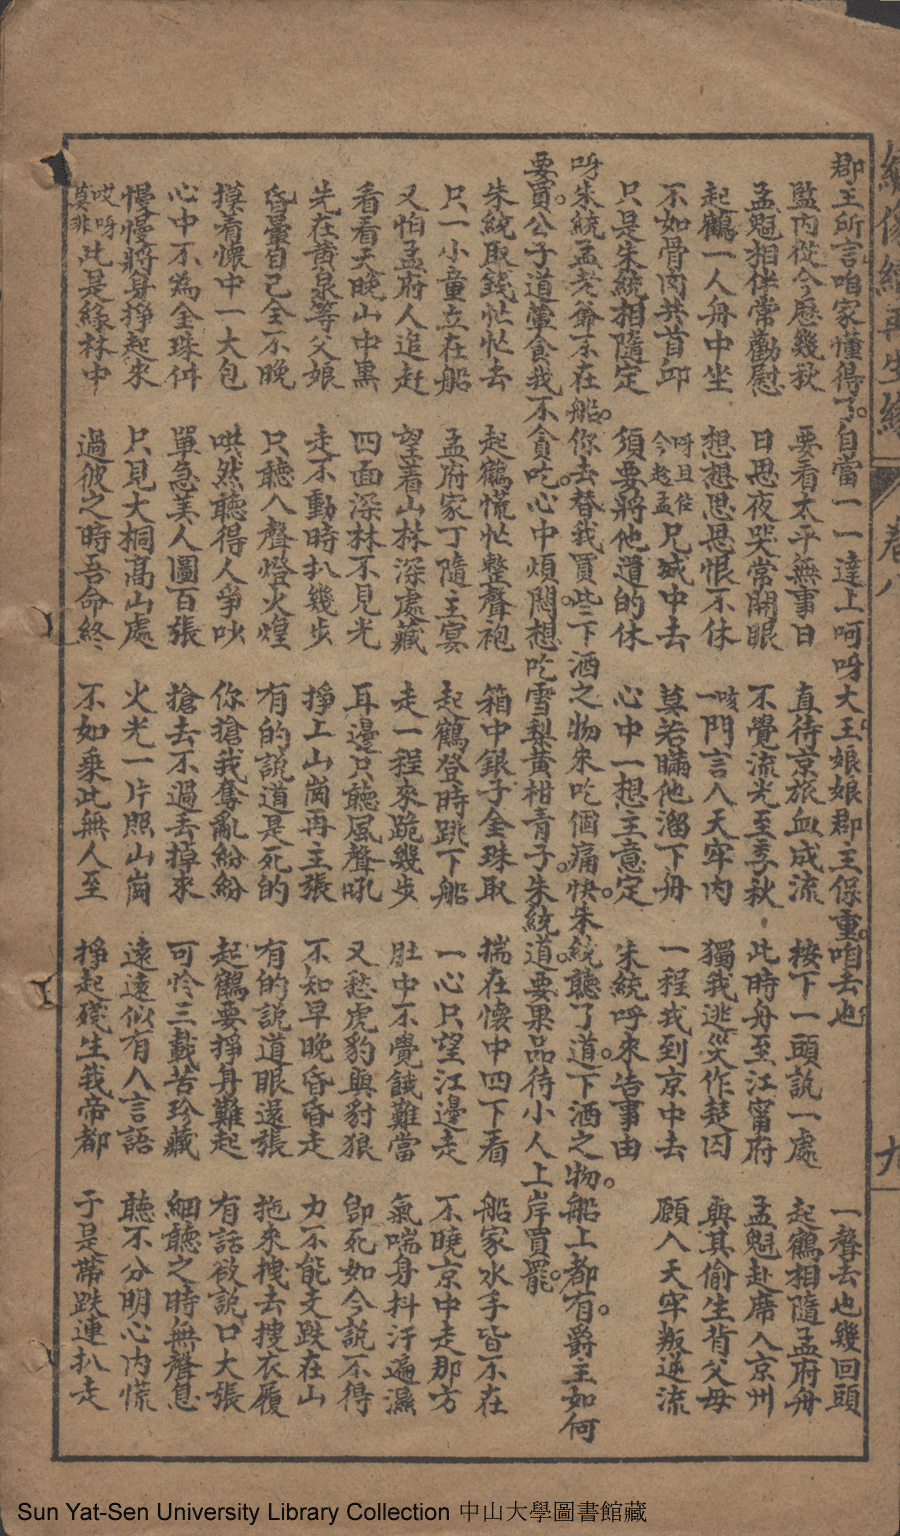 郡主所言咱家懂得了。自當一一達上呵呀大王娘娘郡主保重。咱去也 一聲去也幾回頭
監內從今歷幾秋 要看太平無事日 直待京旅血成流 按下一頭説一處 起鶴相隨孟府舟
孟魁相伴常勸慰 日思夜哭常開眼 不覺流光至季秋 此時舟至江甯府 孟魁赴席入京州
起鶴一人舟中坐 想想思思恨不休 咳一門言入天牢內 獨我逃災作楚囚 與其偷生背父母
不如骨肉共首邱 呀且住今趁孟兄城中去 莫若瞞他溜下舟 一程我到京中去 願入天牢叛逆流
只是朱統相隨定 須要將他遣的休 心中一想主意定 朱統呼來告事由
呀朱統孟老爺不在船。你去替我買些下酒之物來吃個痛快。朱統聽了道。下酒之物。船上都有。爵主如何
要買。公子道葷食我不貪吃。心中煩悶。想吃雪梨黃柑青子。朱統道。要果品待小人上岸買罷。
朱統取錢忙忙去 起鶴慌忙整聲袍 箱中銀子金珠取 揣在懷中四下看 船家水手皆不在
只一小童立在船 孟府家丁隨主宴 起鶴登時跳下船 一心只望江邊走 不曉京中走那方
又怕孟府人追赶 望着山林深處藏 走一程來跪幾步 肚中不覺餓難當 氣喘身抖汗遍濕
看看天晚山中黑 四面深林不見光 耳邊只聽風聲吼 又愁虎豹與豺狼 即死如今説不得
先在黃泉等父娘 走不動時扒幾步 掙上山崗再主張 不知早晚昏昏走 力不能支跌在山
昏暈自己全不曉 只聽人聲燈火煌 有的説道是死的 有的説道眼還張 拖來拽去搜衣履
摸着懷中一大包 哄然聽得人爭吵 你搶我奪亂紛紛 起鶴要掙身難起 有話欲説口大張
心中不為金珠件 單急美人圖百張 搶去不過丟掉來 可怜三載苦珍藏 細聽之時無聲息
慢慢將身掙起來 只見大桐高山處 火光一片照山崗 遠遠似有人言語 聽不分明心內慌
哎呀莫非此是綠林中 過彼之時吾命終 不如乘此無人至 掙起殘生我帝都 于是帶跌連扒走
繡像續再生緣 卷八 九
Sun Yat-Sen University Library Collection 中山大學圖書館藏